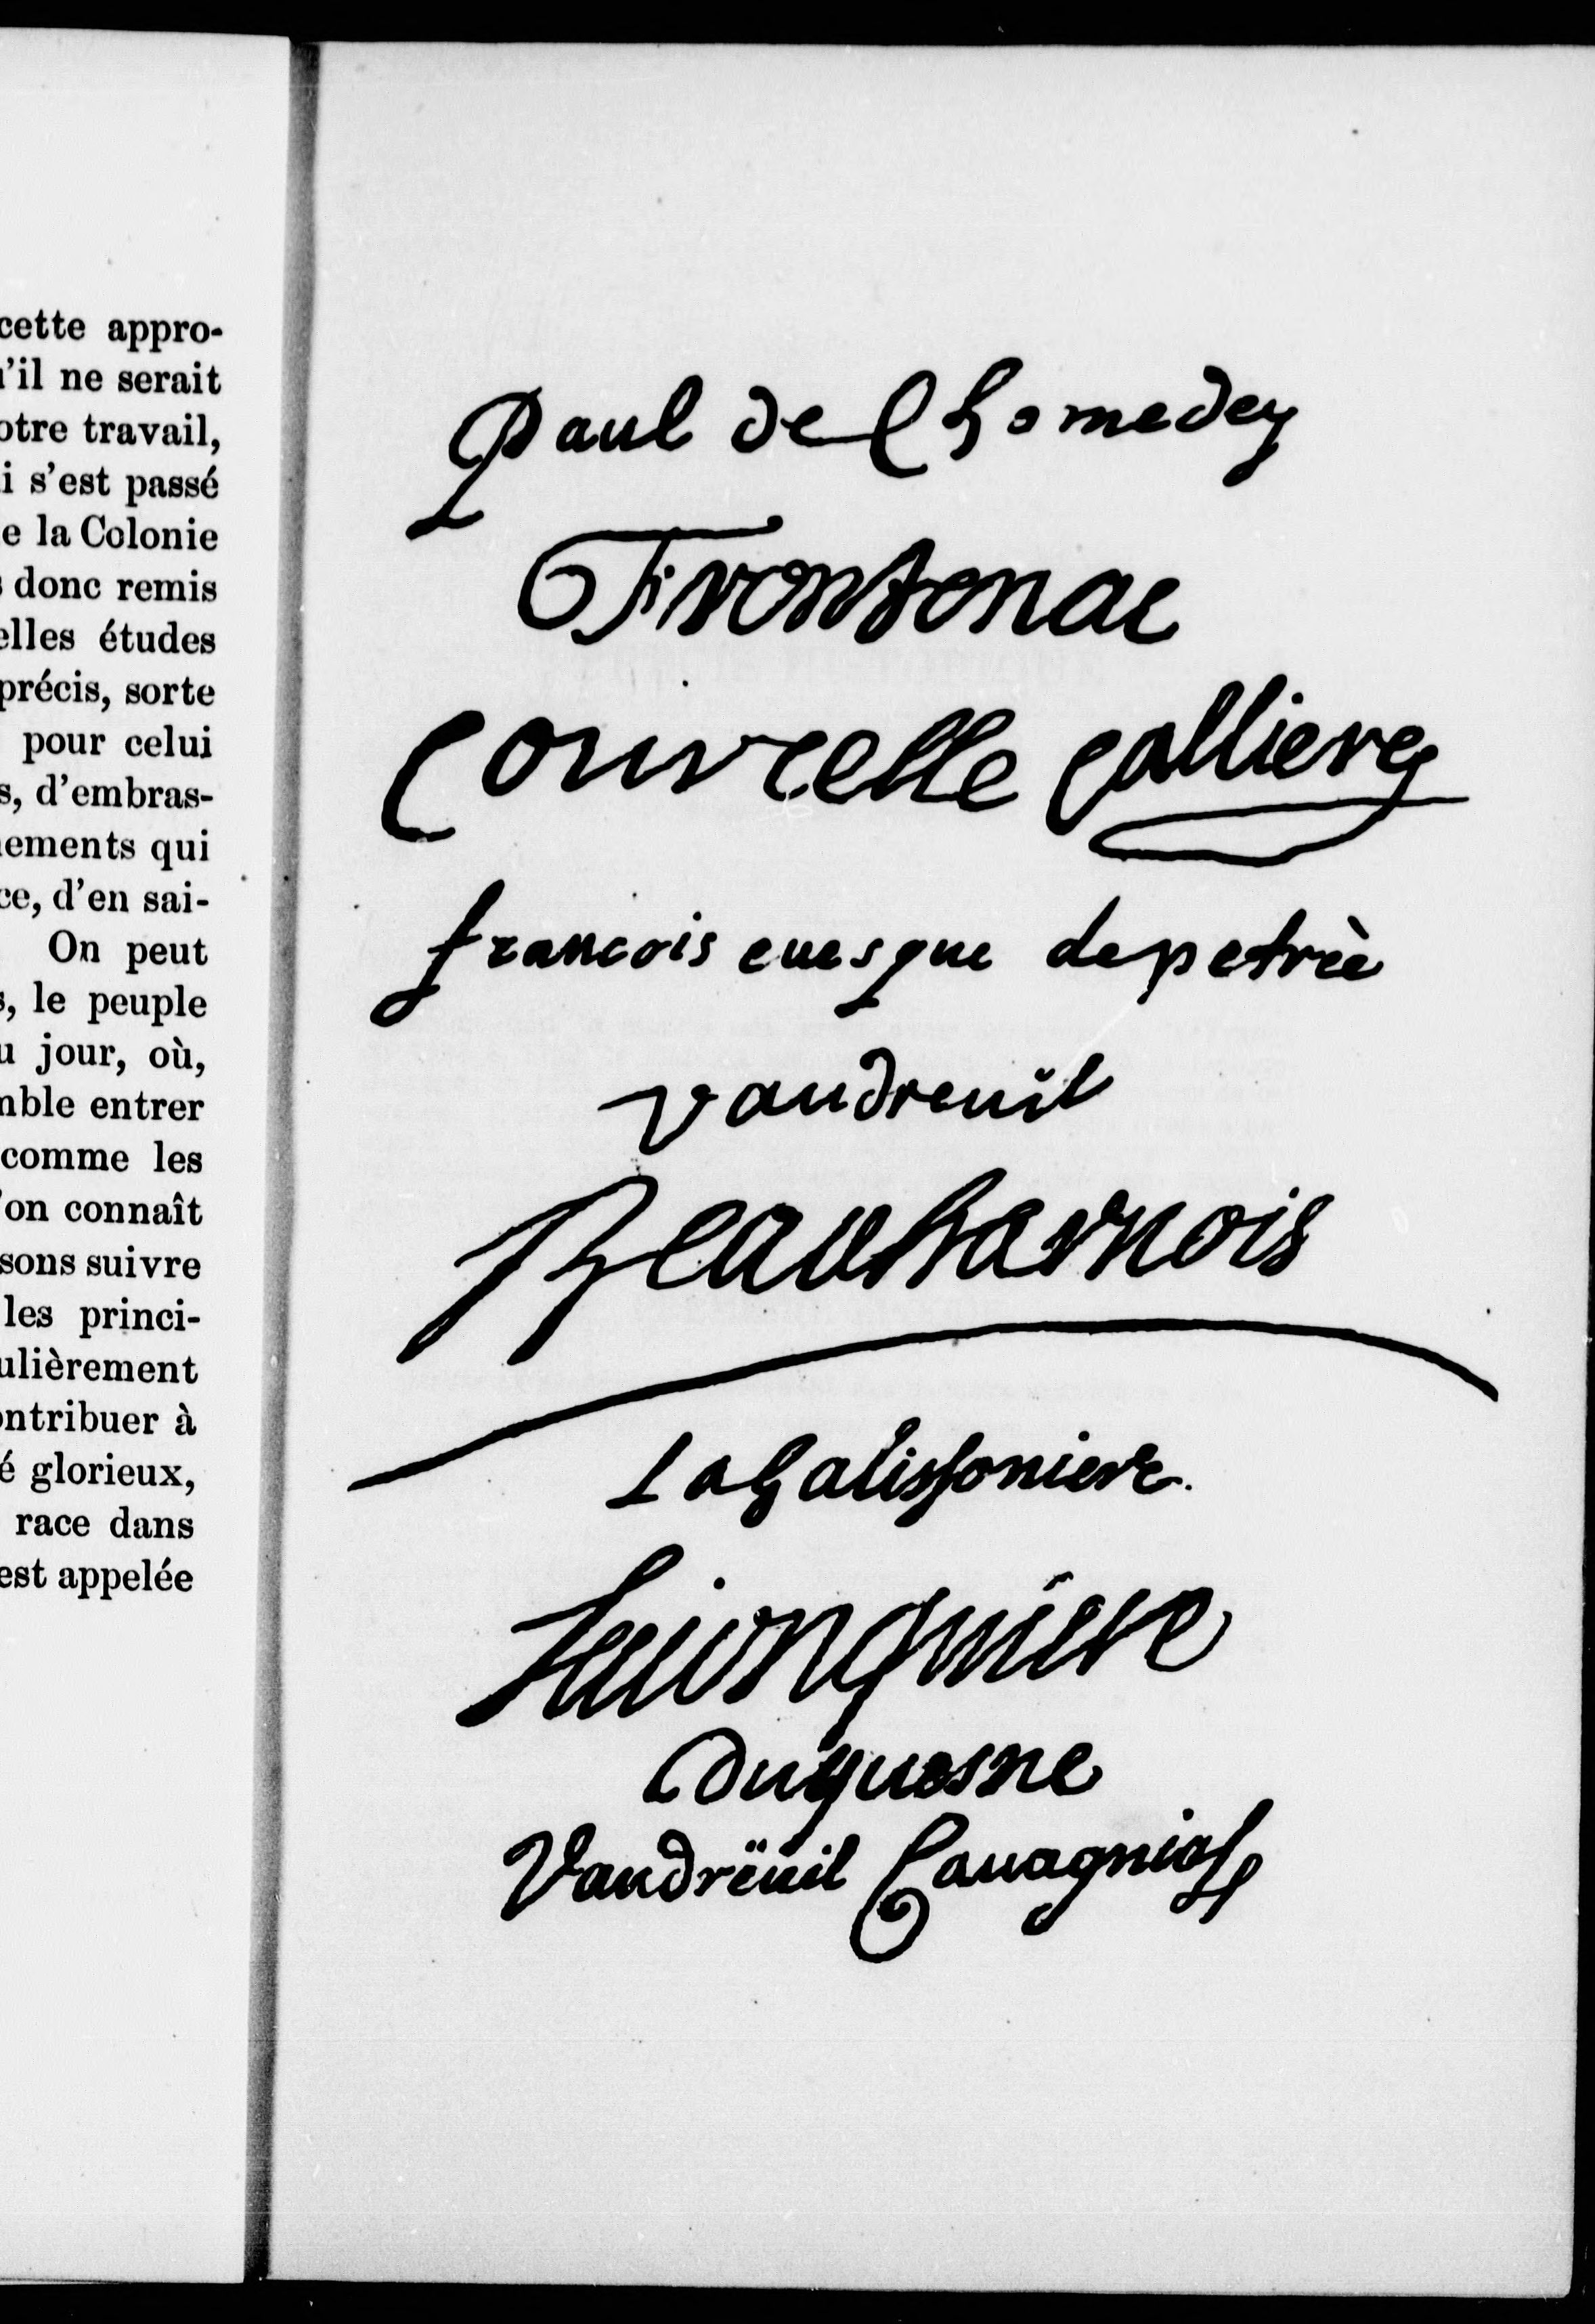 cette appro-
u'il ne serait
otre travail,
i s'est passé
e la Colonie
s donc remis
elles études
précis, sorte
pour celui
s, d'embras-
nements qui
ce, d'en sai-
On peut
s, le peuple
u jour, où,
mble entrer
comme les
'on connaît
sons suivre
les princi-
ulièrement
ontribuer à
é glorieux,
race dans
est appelée
Paul de Chomedey
Frontenac
Courcelle Callieres
francois euesque de petrèe
Vaudreuil
Beauharnois
LaGalissoniere.
Lajonquiere
Duquesne
Vaudrëuil Cauagnial